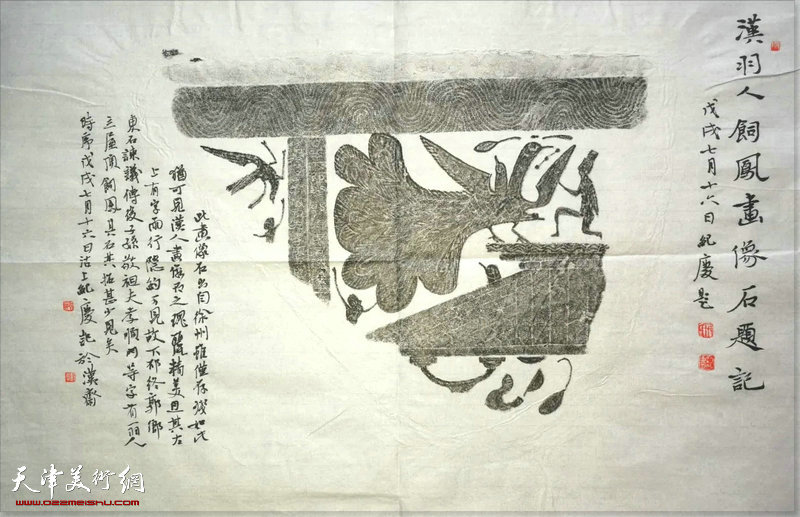 漢羽人飼鳳畫像石題記
戊戌七月十六日紀慶題
此畫像石出自徐州雖僅存殘如此
猶可見漢人畫像石之瑰麗精美且其左
上有字兩行隱約可見故下邳終郭鄉
東石諫議傳後子孫敬祖夫孝順門等字有羽人
立屋頂飼鳳具石共拓甚少見矣
時為戊戌七月十六日沽上紀慶記於漢齋
天津美術網
www.022meishu.com